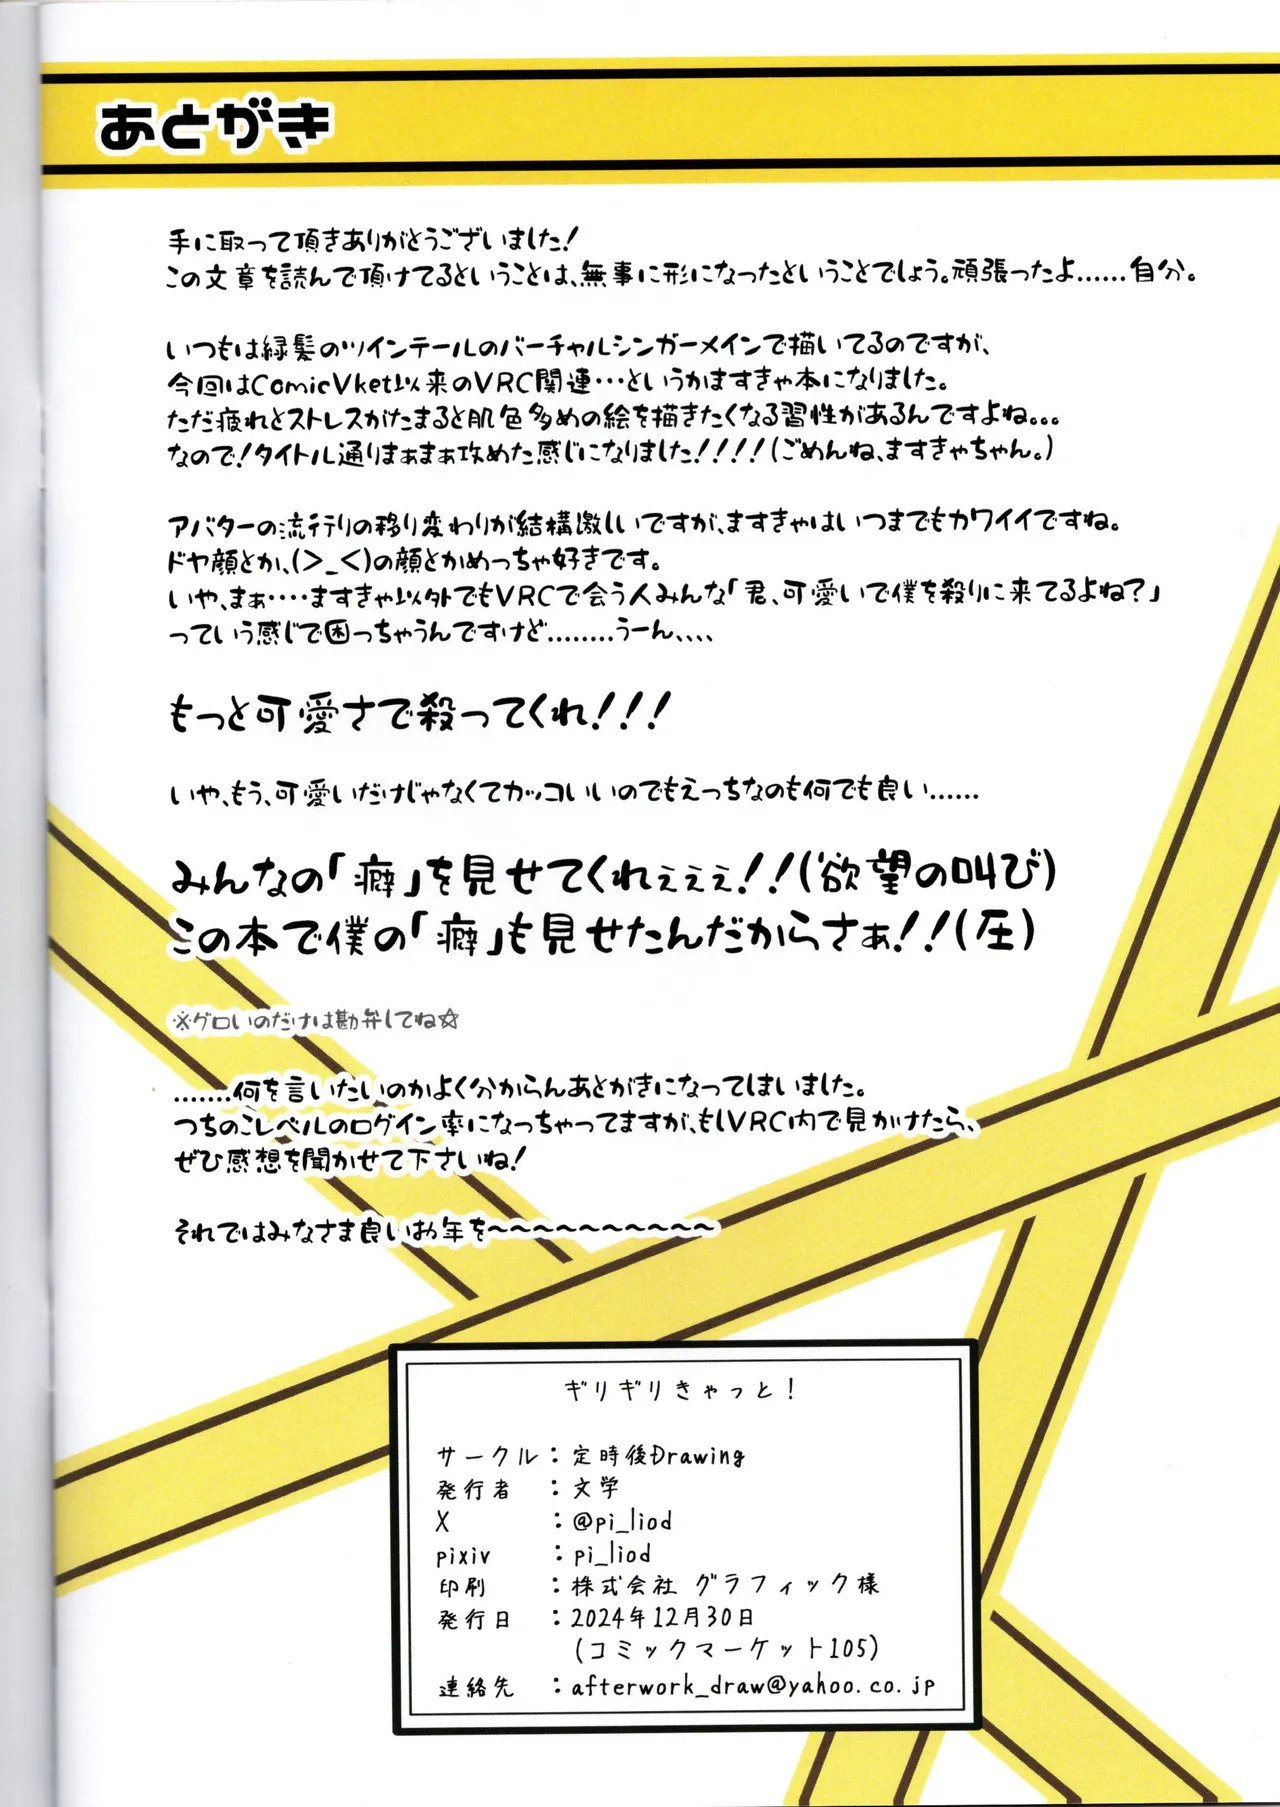 あとがき
手に取って頂きありがとうございました!
この文章を読んで頂けてるということは、無事に形になったということでしょう。頑張ったよ......自分。
いつもは緑髪のツインテールのバーチャルシンガーメインで描いてるのですが、
今回はComicVket以来のVRC関連…というかますきゃ本になりました。
ただ疲れとストレスがたまると肌色多めの絵を描きたくなる習性があるんですよね。。。
なので!タイトル通りまぁまぁ攻めた感じになりました!!!!(ごめんね、ますきゃちゃん。)
アバターの流行りの移り変わりが結構激しいですが、ますきゃはいつまでもカワイイですね。
ドヤ顔とか、(>_<)の顔とかめっちゃ好きです。
いや、まぁ････ますきゃ以外でもVRCで会う人みんな「君、可愛いで僕を殺りに来てるよね?」
っていう感じで困っちゃうんですけど........うーん、、、、
もっと可愛さで殺ってくれ!!!
いや、もう、可愛いだけじゃなくてカッコいいのでもえっちなのも何でも良い......
みんなの「癖」を見せてくれぇぇぇ!!(欲望の叫び)
この本で僕の「癖」も見せたんだからさぁ!!(圧)
※グロいのだけは勘弁してね☆
.......何を言いたいのかよく分からんあとがきになってしまいました。
つちのこレベルのログイン率になっちゃってますが、もしVRC内で見かけたら、
ぜひ感想を聞かせて下さいね!
それではみなさま良いお年を~~~~~~~~~~
ギリギリきゃっと!
サークル:定時後Drawing
発行者:文学
X:@pi_liod
pixiv:pi_liod
印刷:株式会社 グラフィック様
発行日:2024年12月30日
(コミックマーケット105)
連絡先:afterwork_draw@yahoo.co.jp